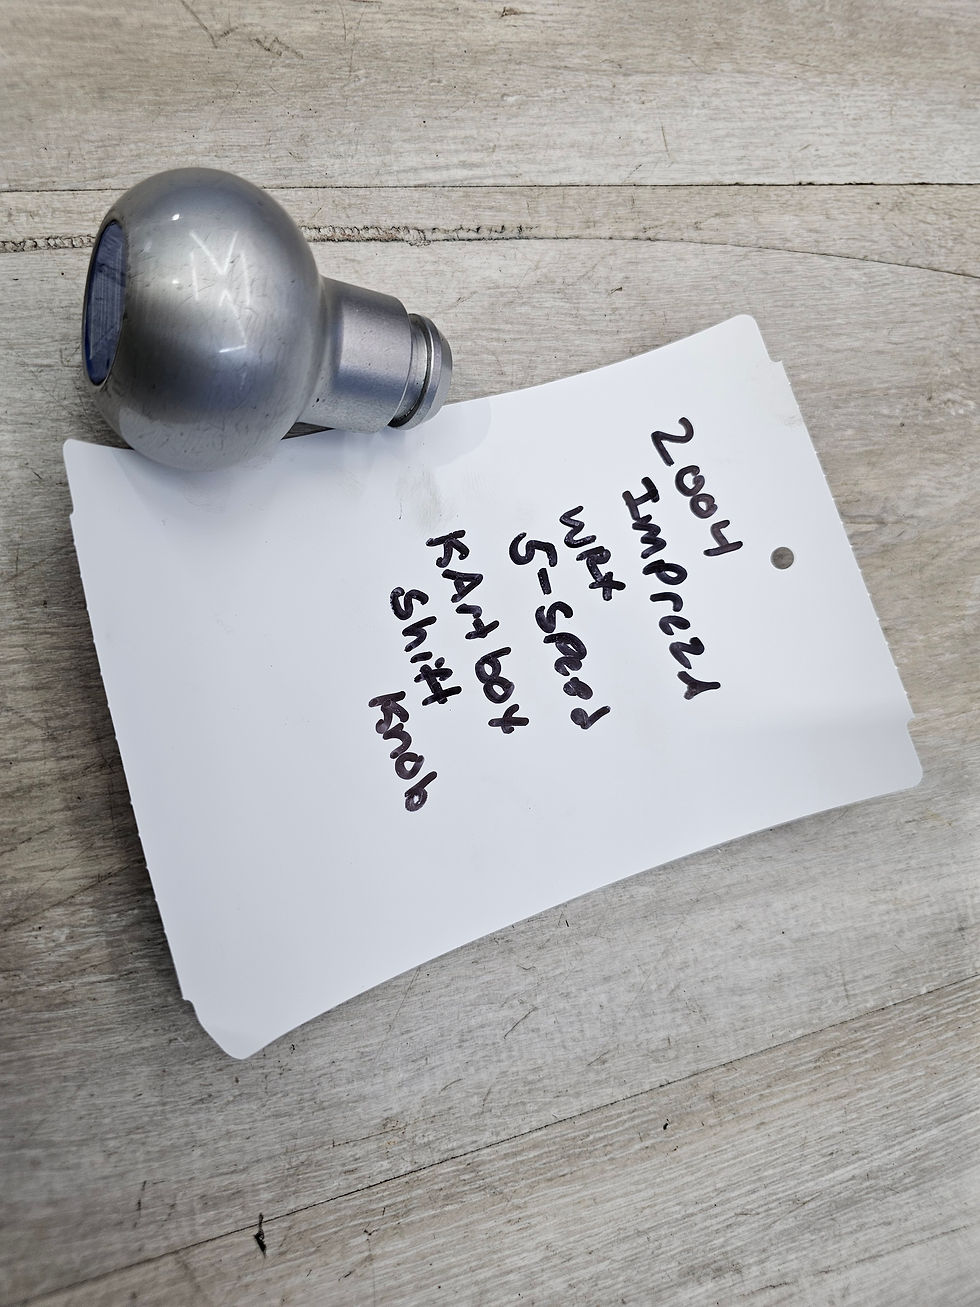 2004
Impreza
WRX
5-Speed
KArtboy
Shift
Knob